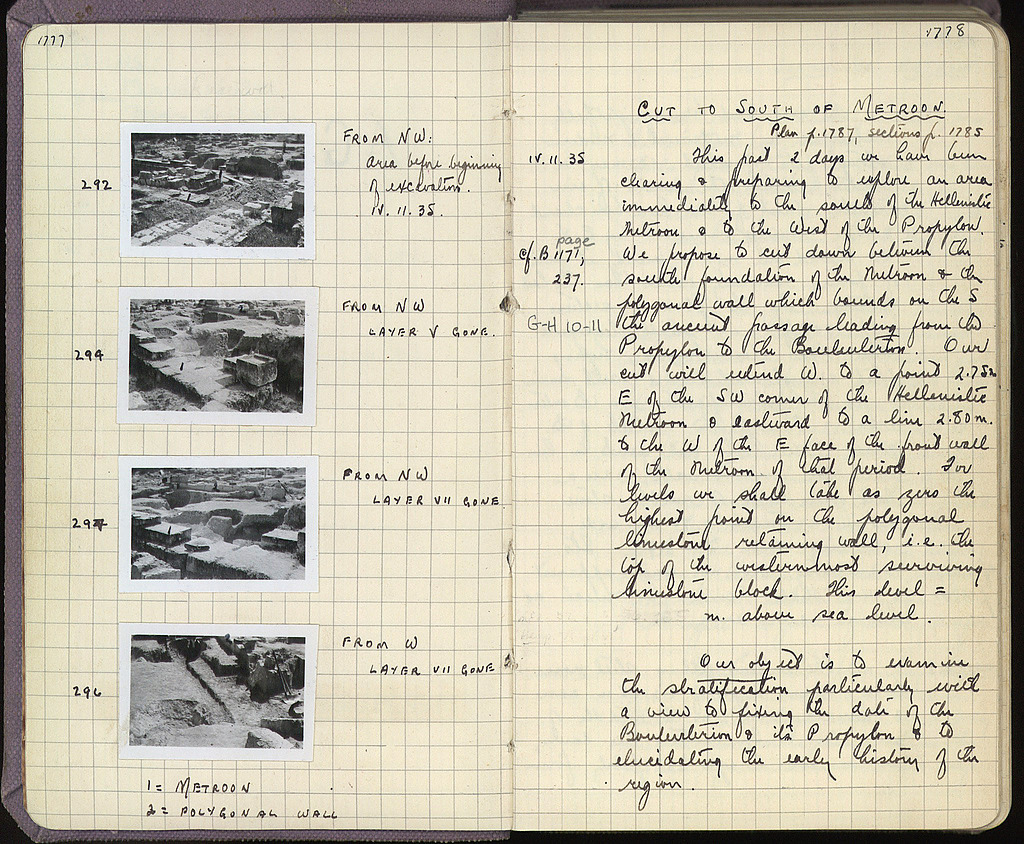 1777
292
FROM NW:
area before beginning
of excavation.
IV. 11. 35.
294
FROM NW
LAYER V GONE.
297
FROM NW
LAYER VII GONE
296
FROM W
LAYER VII GONE
1 = METROON
2 = POLYGONAL WALL
1778
CUT TO SOUTH OF METROON
Plan p. 1787, sections p. 1785
IV. 11. 35
This past 2 days we have been
clearing & preparing to explore an area
immediately to the south of the Hellenistic
Metroon & to the West of the Propylon.
cf. B page 1171,
237.
We propose to cut down between the
south foundation of the Metroon & the
polygonal wall which bounds on the S
G-H 10-11
the ancient passage leading from the
Propylon to the Bouleuterion. Our
cut will extend W. to a point 2.75m
E of the SW corner of the Hellenistic
Metroon & eastward to a line 2.80 m.
to the W of the E face of the front wall
of the Metroon of that period. For
levels we shall take as zero the
highest point on the polygonal
limestone retaining wall, i.e. the
top of the westernmost surviving
limestone block. This level =
m. above sea level.
Our object is to examine
the stratification particularly with
a view to fixing the date of the
Bouleuterion & its Propylon & to
elucidating the early history of the
region.